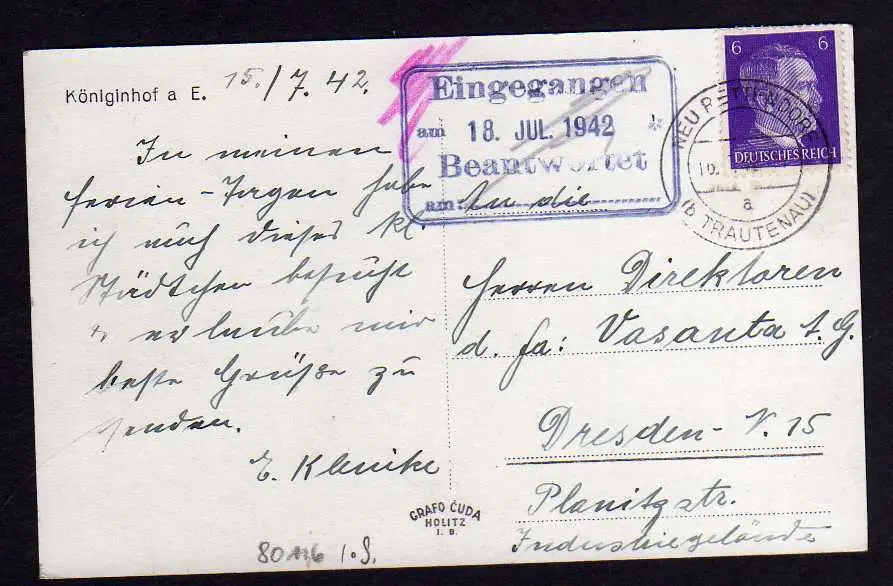 Königinhof a E. 15./7.42.
In meinen
Ferien-Tagen habe
ich auch dieses kl.
Städtchen besucht
u. erlaube mir
beste Grüße zu
senden.
E. Klenike
Eingegangen
am 18. JUL. 1942 *
Beantwortet
am:
6 6
DEUTSCHES REICH
NEU RETTENDORF
a
(b TRAUTENAU)
An die
Herren Direktoren
d. Fa: Vasanta A.G.
Dresden-N. 15
Planitzstr.
Industriegelände
GRAFO ČUDA
HOLITZ
I. B.